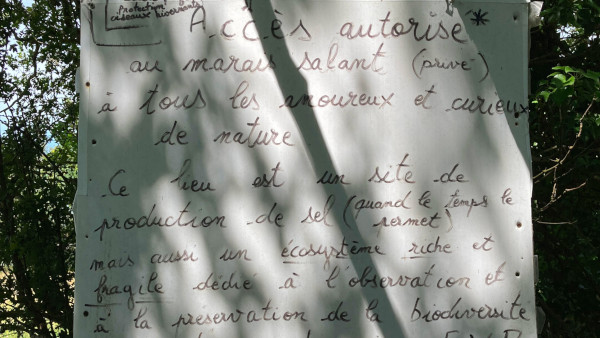 Protection
oiseaux hivernants
Accès autorisé*
au marais salant (privé)
à tous les amoureux et curieux
de nature
Ce lieu est un site de
production de sel (quand le temps le
permet)
mais aussi un écosystème riche et
fragile dédié à l'observation et
à la préservation de la biodiversité